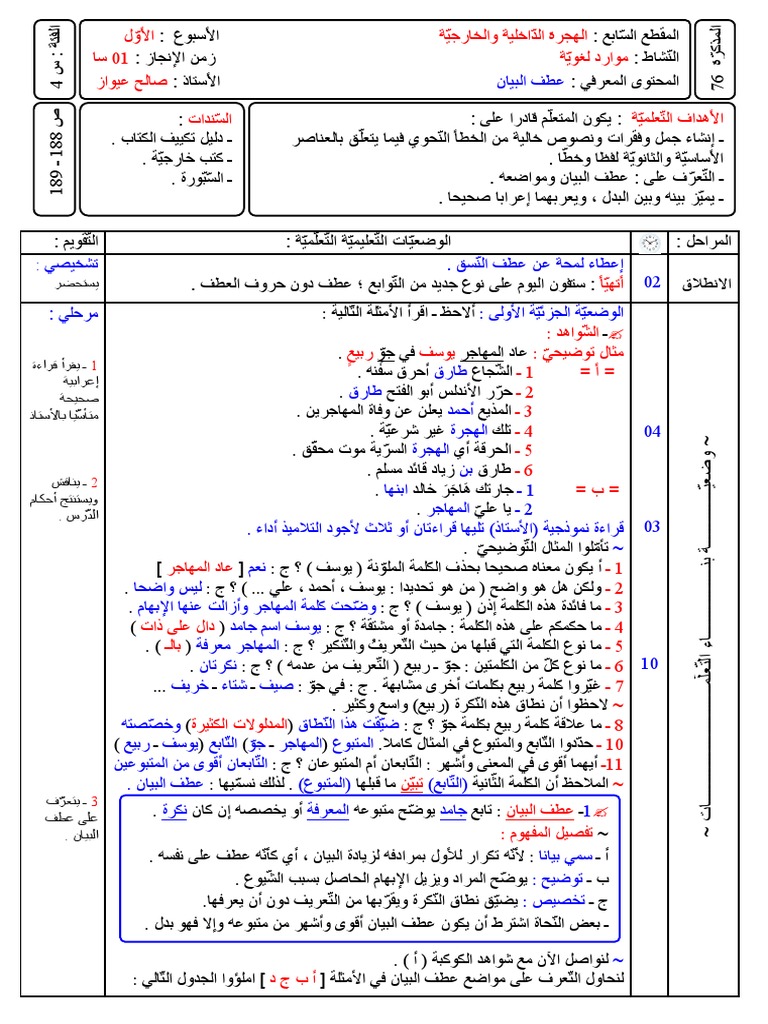 المذكرّة 76
المقطع السّابع : الهجرة الدّاخلية والخارجيّة
النّشاط : موارد لغويّة
المحتوى المعرفي : عطف البيان
الأسبوع : الأوّل
زمن الإنجاز : 01 سا
الأستاذ : صالح عيواز
الفئة : س 4
الأهداف التّعلميّة : يكون المتعلّم قادرا على :
ـ إنشاء جمل وفقرات ونصوص خالية من الخطأ النّحوي فيما يتعلّق بالعناصر
الأساسيّة والثانويّة لفظا وخطّا .
ـ التّعرّف على : عطف البيان ومواضعه .
ـ يميّز بينه وبين البدل ، ويعربهما إعرابا صحيحا .
السّندات :
ـ دليل تكييف الكتاب .
ـ كتب خارجيّة .
ـ السّبّورة .
ص 188 - 189
المراحل :
الوضعيّات التّعليميّة التّعلّميّة :
التّقويم :
الانطلاق
02
إعطاء لمحة عن عطف النّسق .
أتهيّأ : ستقفون اليوم على نوع جديد من التّوابع ؛ عطف دون حروف العطف .
تشخيصي :
يستحضر
~ وضعيّـة بنـاء التّعلّمـات ~
04
03
10
الوضعيّة الجزئيّة الأولى : ألاحظ ـ اقرأ الأمثلة التّالية :
✍ـ الشّواهد :
مثال توضيحيّ : عاد المهاجر يوسف في جوّ ربيعٍ .
= أ = 1 ـ الشّجاع طارق أحرق سفنه .
2 ـ حرّر الأندلس أبو الفتح طارق .
3 ـ المذيع أحمد يعلن عن وفاة المهاجرين .
4 ـ تلك الهجرة غير شرعيّة .
5 ـ الحرقة أي الهجرة السّرية موت محقّق .
6 ـ طارق بن زياد قائد مسلم .
= ب = 1 ـ جارتك هَاجَرَ خالد ابنها .
2 ـ يا عليّ المهاجر .
قراءة نموذجية (الأستاذ) تليها قراءتان أو ثلاث لأجود التلاميذ أداء .
~ تأمّلوا المثال التّوضيحيّ .
1 ـ أ يكون معناه صحيحا بحذف الكلمة الملوّنة ( يوسف ) ؟ ج : نعم [ عاد المهاجر ]
2 ـ ولكن هل هو واضح ( من هو تحديدا : يوسف ، أحمد ، علي ... ) ؟ ج : ليس واضحا .
3 ـ ما فائدة هذه الكلمة إذن ( يوسف ) ؟ ج : وضّحت كلمة المهاجر وأزالت عنها الإبهام .
4 ـ ما حكمكم على هذه الكلمة : جامدة أو مشتقة ؟ ج : يوسف اسم جامد ( دال على ذات )
5 ـ ما نوع الكلمة التي قبلها من حيث التّعريفُ والتّنكير ؟ ج : المهاجر معرفة ( بالـ ) .
6 ـ ما نوع كلّ من الكلمتين : جوّ ـ ربيع ( التّعريف من عدمه ) ؟ ج : نكرتان .
7 ـ غيّروا كلمة ربيع بكلمات أخرى مشابهة . ج : في جوّ : صيف ـ شتاء ـ خريف ...
~ لاحظوا أن نطاق هذه النّكرة (ربيع) واسع وكثير .
8 ـ ما علاقة كلمة ربيع بكلمة جوّ ؟ ج : ضيّقت هذا النّطاق (المدلولات الكثيرة) وخصّصته
10 ـ حدّدوا التّابع والمتبوع في المثال كاملا. المتبوع (المهاجر ـ جوّ) التّابع (يوسف ـ ربيع )
11ـ أيهما أقوى في المعنى وأشهر : التّابعان أم المتبوعان ؟ ج : التّابعان أقوى من المتبوعين
~ الملاحظ أن الكلمة الثّانية (التّابع) تبيّن ما قبلها (المتبوع) . لذلك نسمّيها : عطف البيان .
✍1ـ عطف البيان : تابع جامد يوضّح متبوعه المعرفة أو يخصصه إن كان نكرة .
~ تفصيل المفهوم :
أ ـ سمي بيانا : لأنّه تكرار للأول بمرادفه لزيادة البيان ، أي كأنّه عطف على نفسه .
ب ـ توضيح : يوضّح المراد ويزيل الإبهام الحاصل بسبب الشّيوع .
ج ـ تخصيص : يضيّق نطاق النّكرة ويقرّبها من التّعريف دون أن يعرفها.
ـ بعض النّحاة اشترط أن يكون عطف البيان أقوى وأشهر من متبوعه وإلا فهو بدل .
~ لنواصل الآن مع شواهد الكوكبة ( أ ) .
لنحاول التّعرف على مواضع عطف البيان في الأمثلة [ أ ب ج د ] املؤوا الجدول التّالي :
مرحلي :
1 ـ يقرأ قراءة
إعرابية
صحيحة
متأسّيا بالأستاذ
2 ـ يناقش
ويستنتج أحكام
الدّرس .
3 ـ يتعرّف
على عطف
البيان .